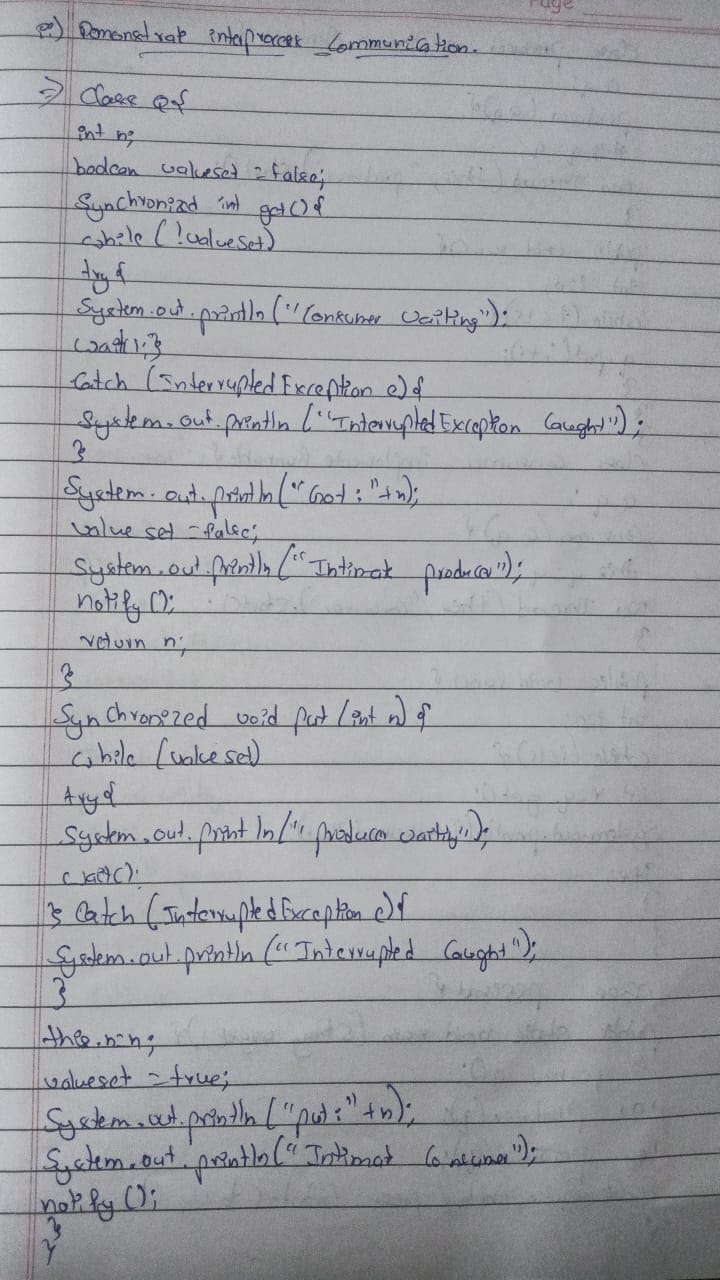 Page
Demonstrate interprocess Communication.
=> Class Q{
int n;
boolean valueset = false;
Synchronized int get() {
while (!valueSet)
try {
System.out.println ("Consumer Waiting");
wait();}
Catch (InterruptedException e) {
System.out.println ("InterruptedException Caught");
}
System.out.println ("Got:"+n);
value set = false;
System.out.println ("Intimate producer");
notify ();
return n;
}
Synchronized void put (int n) {
while (value set)
try {
System.out.println ("producer waiting");
wait();
} Catch (InterruptedException e) {
System.out.println ("Interrupted Caught");
}
this.n=n;
valueset = true;
System.out.println ("put:" +n);
System.out.println ("Intimate Consumer");
notify ();
}
}